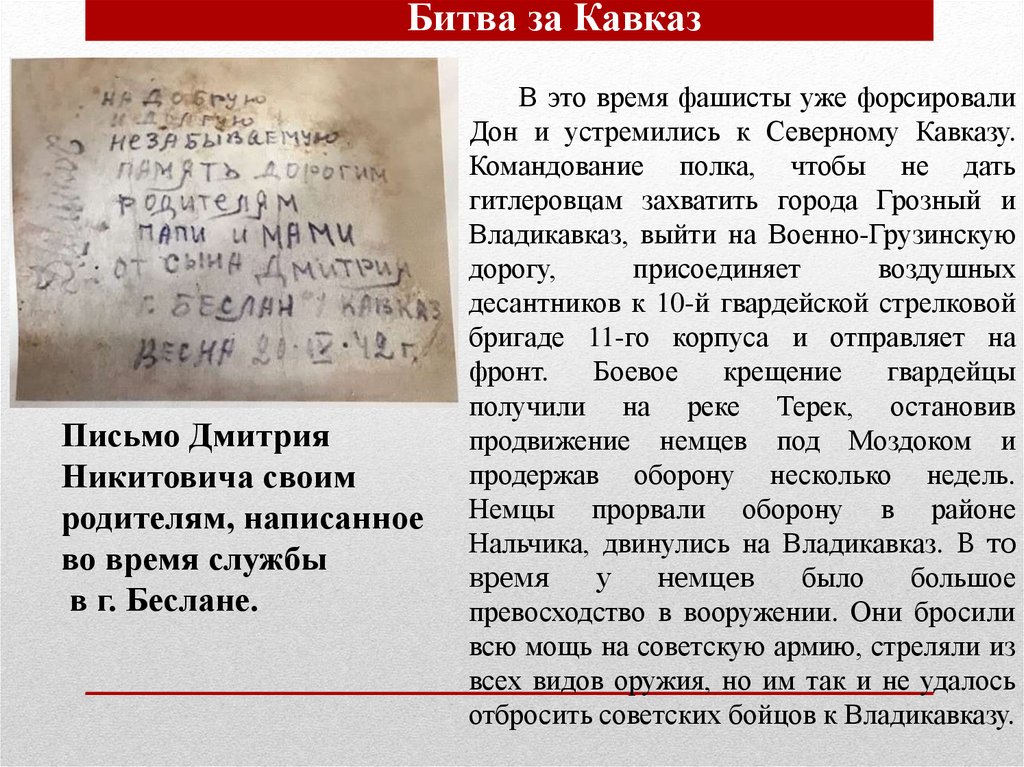 Битва за Кавказ
НА ДОБРУЮ
И ДОЛГУЮ
НЕЗАБЫВАЕМУЮ
ПАМЯТЬ ДОРОГИМ
РОДИТЕЛЯМ
ПАПИ И МАМИ
ОТ СЫНА ДМИТРИЯ
г. БЕСЛАН КАВКАЗ
ВЕСНА 20.IV.42 г.
Письмо Дмитрия
Никитовича своим
родителям, написанное
во время службы
в г. Беслане.
В это время фашисты уже форсировали
Дон и устремились к Северному Кавказу.
Командование полка, чтобы не дать
гитлеровцам захватить города Грозный и
Владикавказ, выйти на Военно-Грузинскую
дорогу, присоединяет воздушных
десантников к 10-й гвардейской стрелковой
бригаде 11-го корпуса и отправляет на
фронт. Боевое крещение гвардейцы
получили на реке Терек, остановив
продвижение немцев под Моздоком и
продержав оборону несколько недель.
Немцы прорвали оборону в районе
Нальчика, двинулись на Владикавказ. В то
время у немцев было большое
превосходство в вооружении. Они бросили
всю мощь на советскую армию, стреляли из
всех видов оружия, но им так и не удалось
отбросить советских бойцов к Владикавказу.